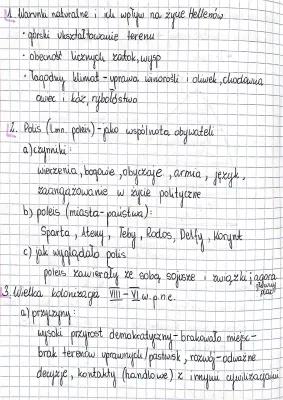 1. Warunki naturalne i ich wpływ na życie Hellenów
• górski ukształtowanie terenu
• obecność licznych zatok, wysp
• łagodny klimat - uprawa winorośli i oliwek, chodowna
owiec i kóz, rybołóstwo
2. Polis (l.mn. poleis) - jako wspólnota obywateli
a) czynniki:
wierzenia, bogowie, obyczaje, armia, język,
zaangażowanie w życie polityczne
b) poleis (miasta-państwa):
Sparta, Ateny, Teby, Rodos, Delfy, Korynt
c) jak wyglądało polis
poleis zawierały ze sobą sojusze i związki, agora
główny plac
3. Wielka kolonizacja VIII-VI w.p.n.e.
a) przyczyny:
wysoki przyrost demokratyczny - brakowało miejsc -
brak terenów uprawnych/pastwisk, rozwój - odważne
decyzje, kontakty (handlowe) z innymi cywilizacjami